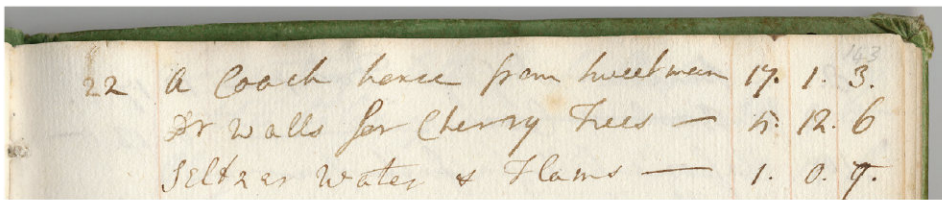 163
22 A Coach horse from Sweetman 17. 1. 3.
Dr Walls for Cherry Trees — 5. 12. 6
Seltzer Water & Flams — 1. 0. 9.